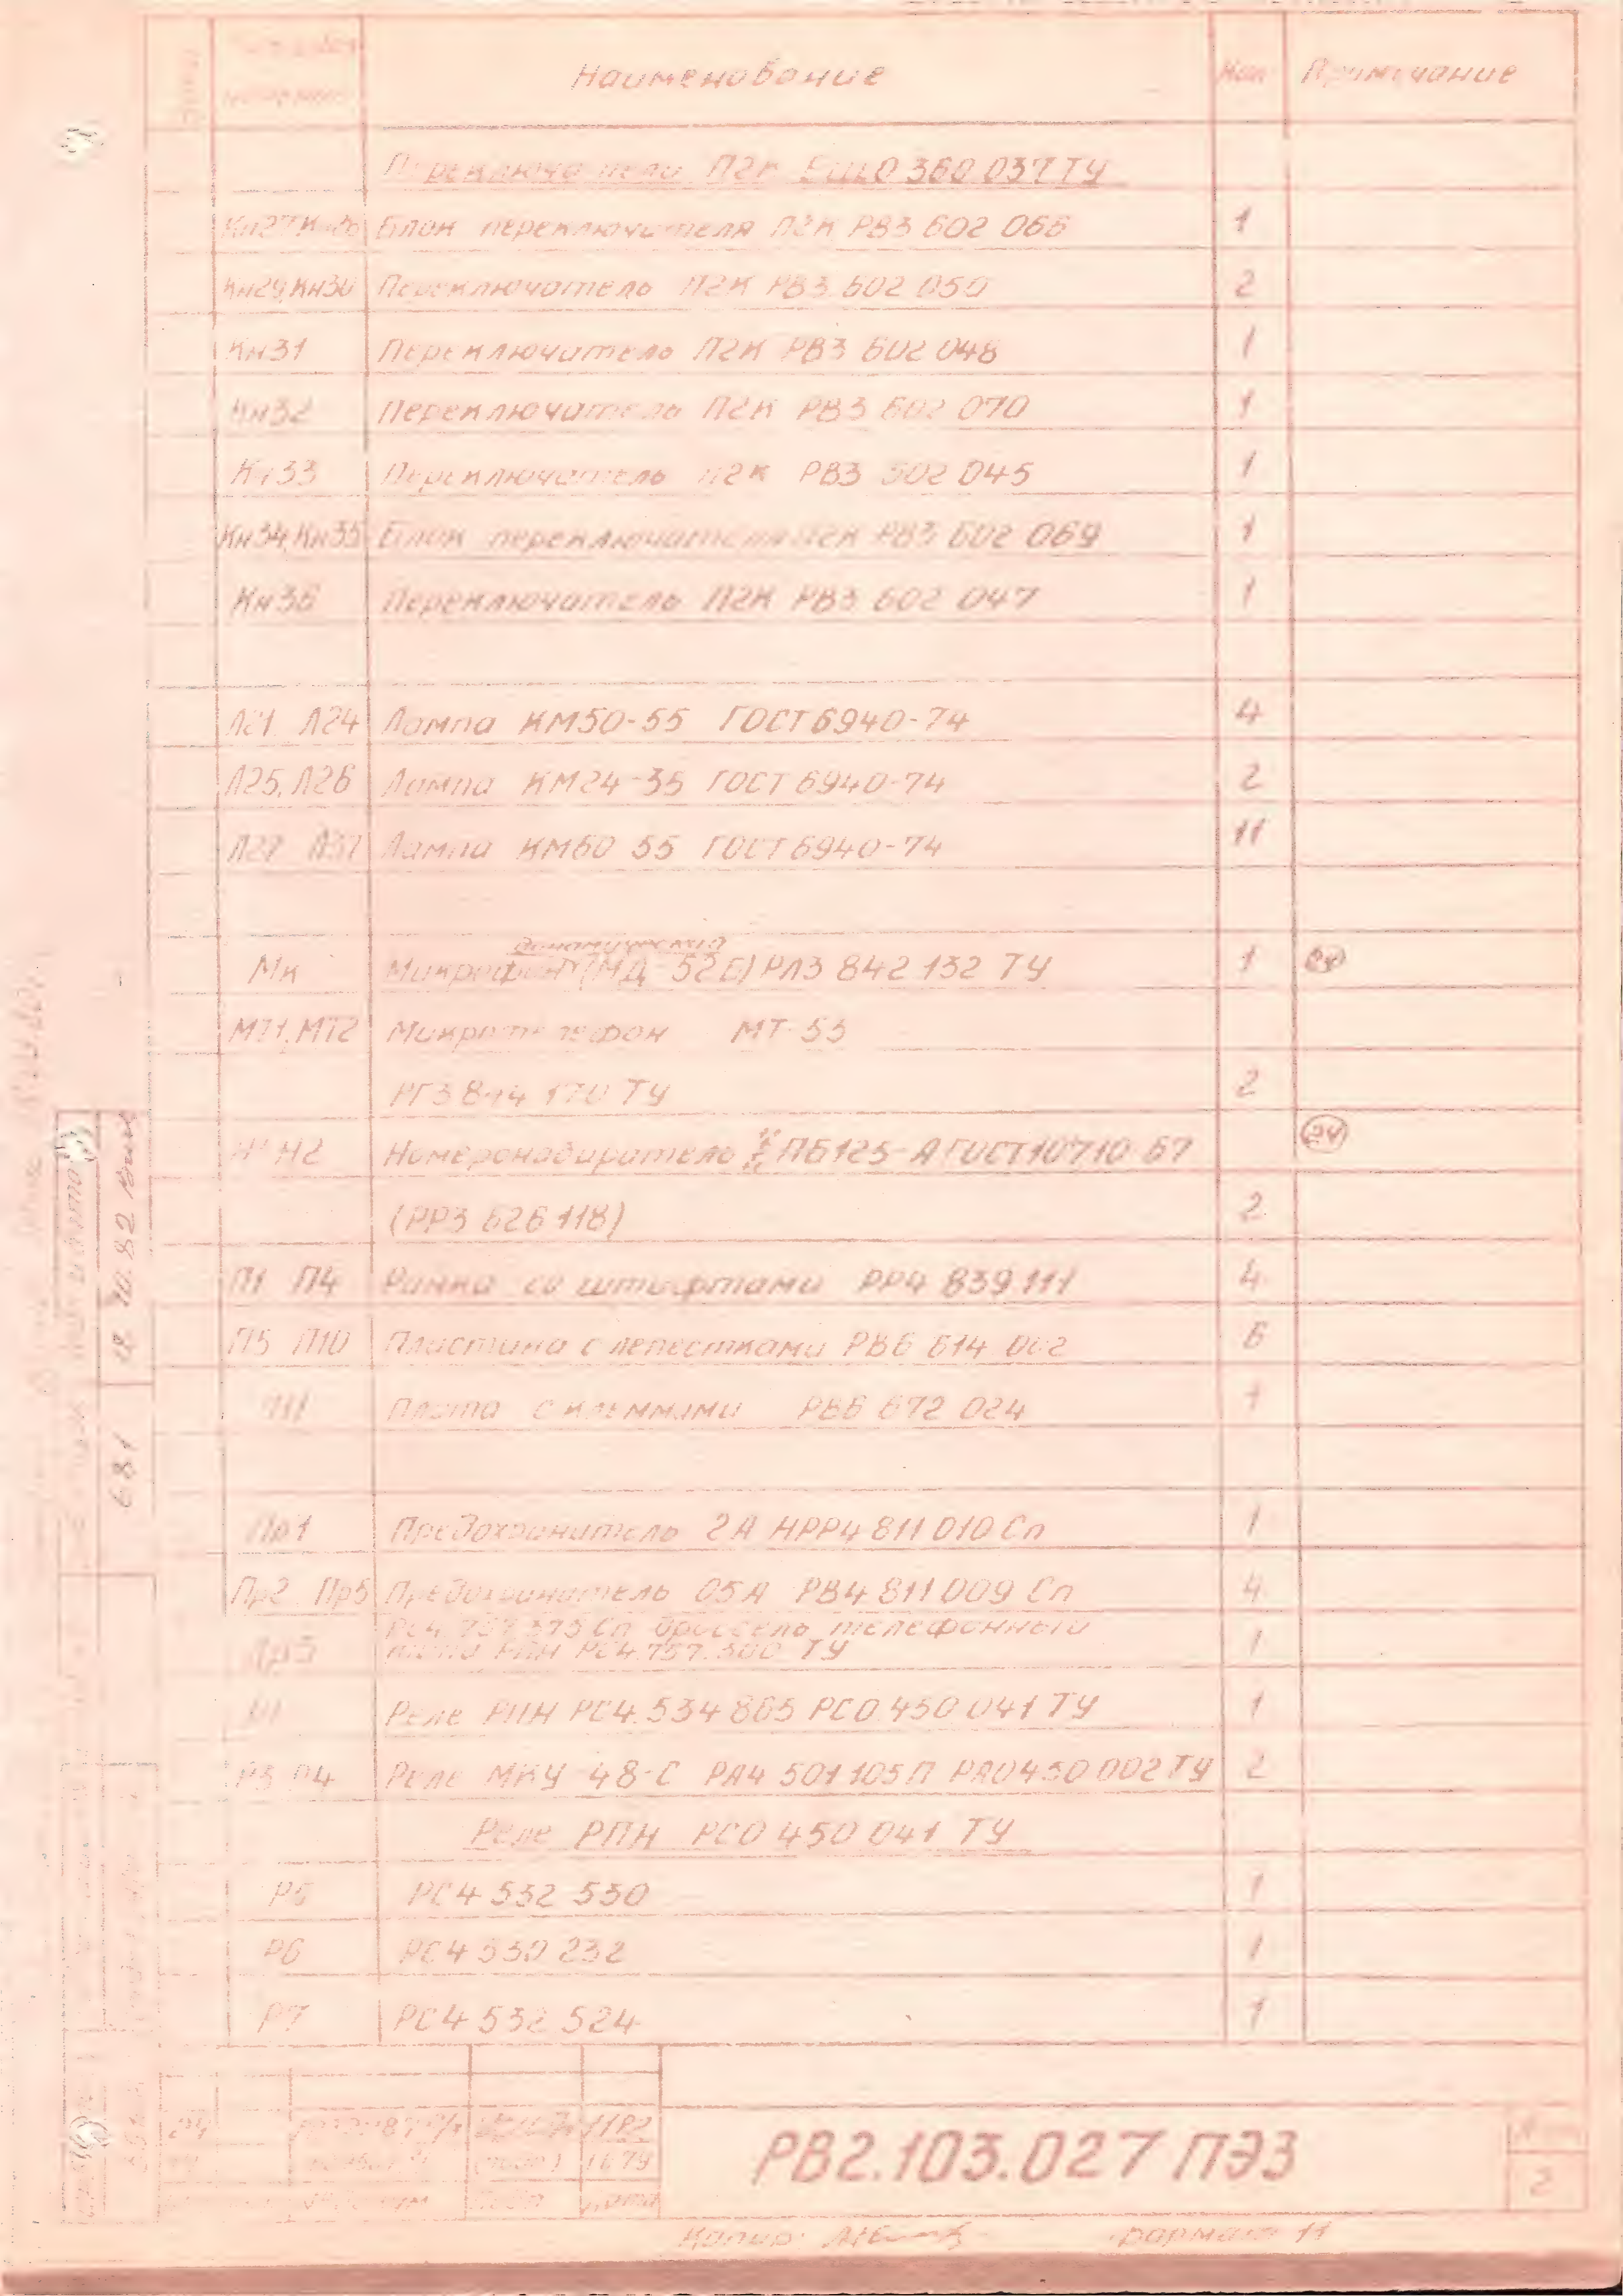 Наименование Кол Примечание
Переключатели П2К ЕЩ0 360 037 ТУ
Блок переключателя П2К РВ3 602 066 1
Кн29,Кн30 Переключатель П2К РВ3 602 050 2
Кн31 Переключатель П2К РВ3 602 048 1
Кн32 Переключатель П2К РВ3 602 070 1
Кн33 Переключатель П2К РВ3 602 045 1
Кн34,Кн35 Блок переключателя П2К РВ3 602 069 1
Кн36 Переключатель П2К РВ3 602 047 1
Л21 Л24 Лампа КМ50-55 ГОСТ 6940-74 4
Л25, Л26 Лампа КМ24-35 ГОСТ 6940-74 2
Л27 Л37 Лампа КМ60 55 ГОСТ 6940-74 11
динамический
Мк Микрофон (МД-52Б) РЛ3 842 132 ТУ 1 24
МТ1,МТ2 Микротелефон МТ-55
РГ3 844 170 ТУ 2
Н2 Номеронабиратель ПБ125-А ГОСТ 10710 67 24
(РР3 626 118) 2
П1 П4 Рамка со штифтами РР4 839 111 4
П5 П10 Пластина с лепестками РВ6 614 002 6
П11 Плата с клеммами РВ6 672 024 1
Пр1 Предохранитель 2А НРР4 811 010 Сп 1
Пр2 Пр5 Предохранитель 05А РВ4 811 009 Сп 4
РС4.757.375 Сп Дроссель телефонный
типа РПН РС4.757.300 ТУ 1
Реле РПН РС4.534 865 РС0.450 041 ТУ 1
Р3 Р4 Реле МКУ-48-С РА4 501 105П РА0 450 002 ТУ 2
Реле РПН РС0 450 041 ТУ
Р5 РС4 532 530 1
Р6 РС4 530 232 1
Р7 РС4 532 524 1
681 18 10.82
24 11 82
11 79
дата
РВ2.103.027 ПЭ3
2
Копир. Формат 11